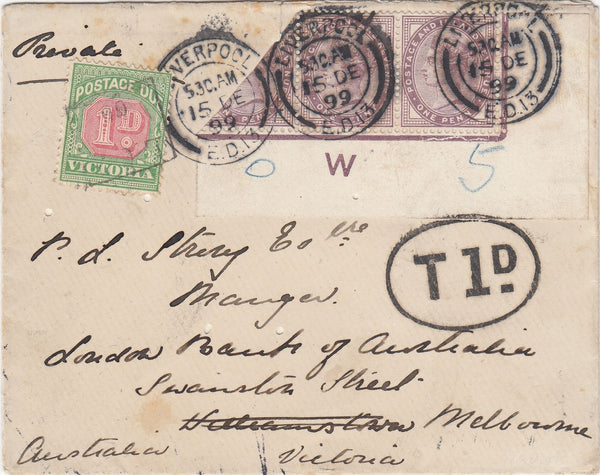 Private
LIVERPOOL
5.30 AM
15 DE
99
E.D.13
LIVERPOOL
5.30 AM
15 DE
99
E.D.13
LIVERPOOL
5.30 AM
15 DE
99
E.D.13
POSTAGE AND INLAND
ONE PENNY
POSTAGE DUE
1D.
VICTORIA
O W 5
T 1D.
P. L. Esqre
Manger
London Bank of Australia
Swanston Street
Williamstown Melbourne
Australia Victoria